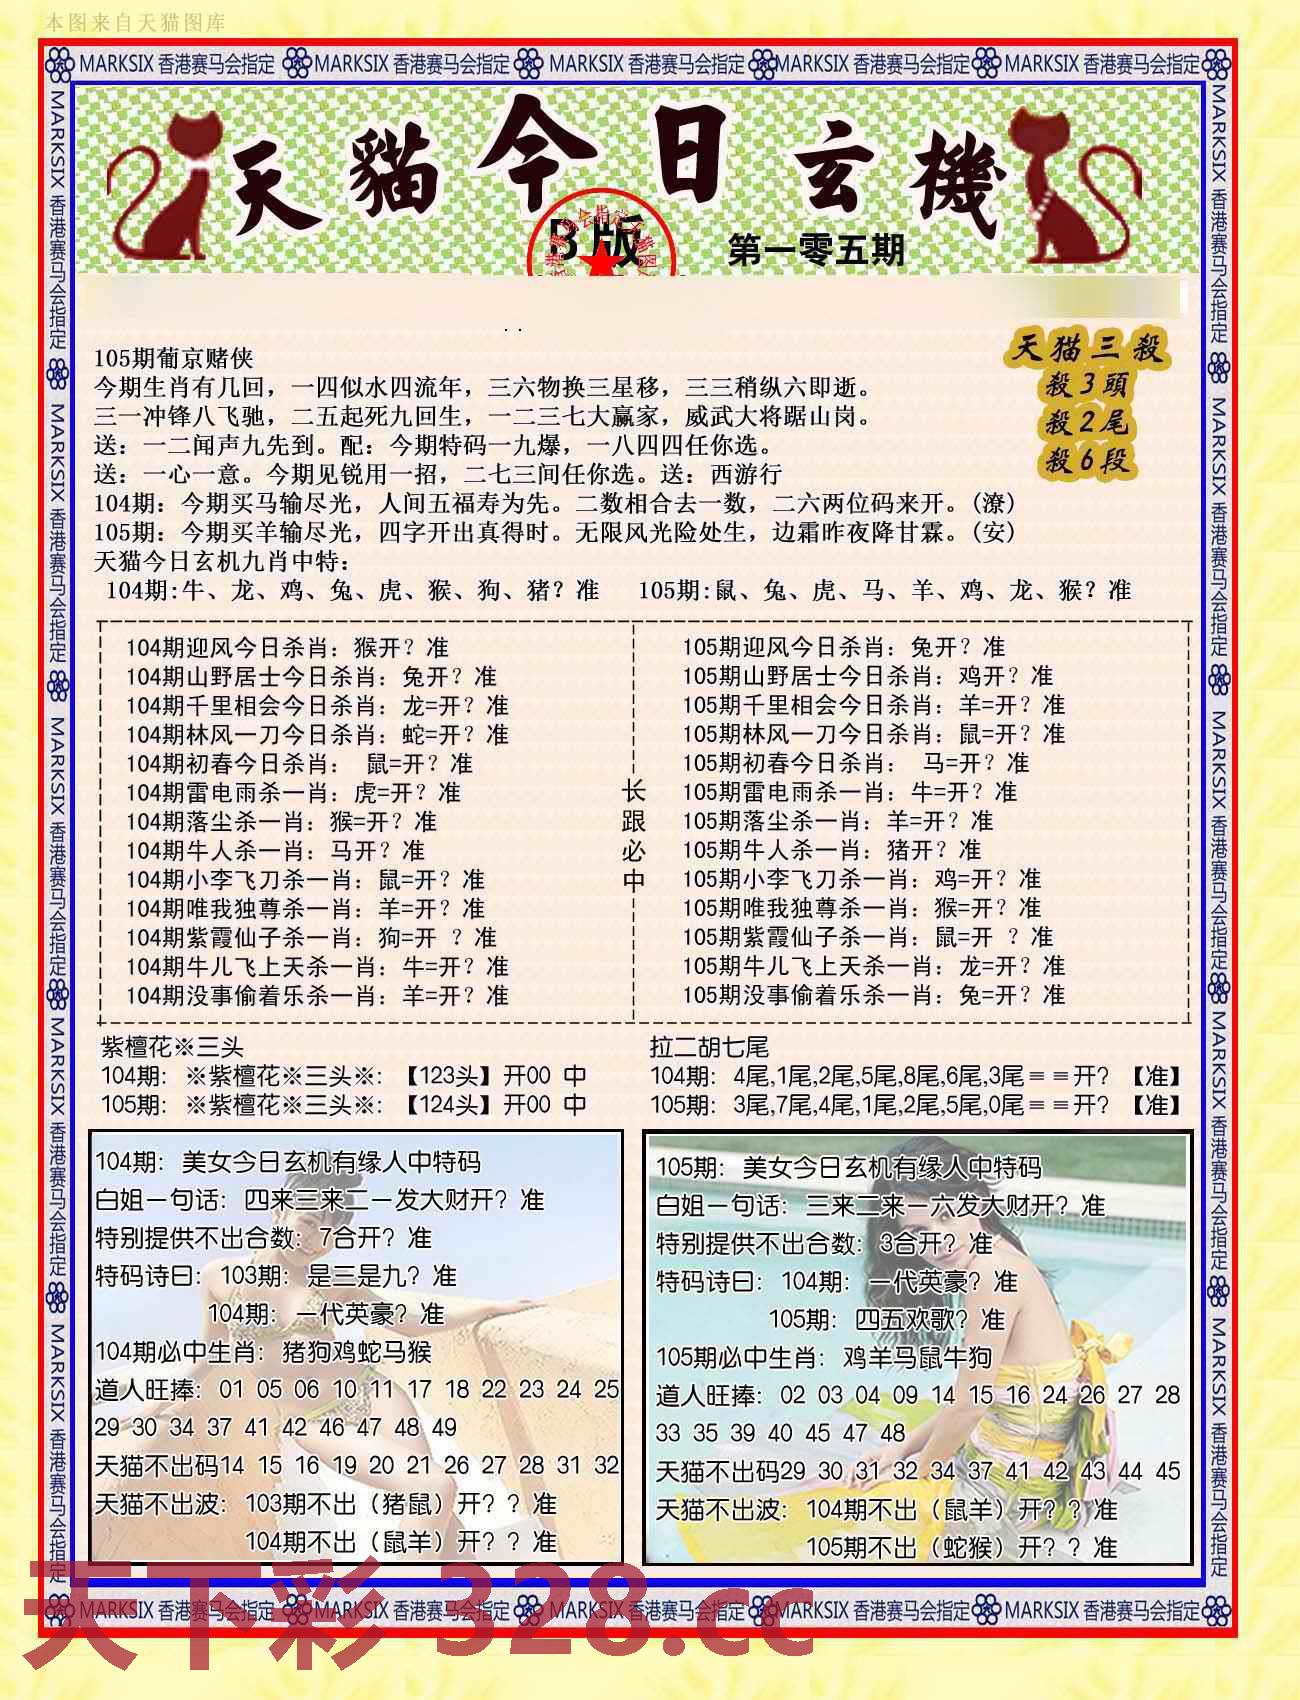 本图来自天猫图库
MARKSIX 香港赛马会指定 MARKSIX 香港赛马会指定 MARKSIX 香港赛马会指定 MARKSIX 香港赛马会指定 MARKSIX 香港赛马会指定
天貓今日玄機
B版
第一零五期
天猫三殺
殺3頭
殺2尾
殺6段
105期葡京赌侠
今期生肖有几回，一四似水四流年，三六物换三星移，三三稍纵六即逝。
三一冲锋八飞驰，二五起死九回生，一二三七大赢家，威武大将踞山岗。
送：一二闻声九先到。配：今期特码一九爆，一八四四任你选。
送：一心一意。今期见锐用一招，二七三间任你选。送：西游行
104期：今期买马输尽光，人间五福寿为先。二数相合去一数，二六两位码来开。(潦)
105期：今期买羊输尽光，四字开出真得时。无限风光险处生，边霜昨夜降甘霖。(安)
天猫今日玄机九肖中特：
104期:牛、龙、鸡、兔、虎、猴、狗、猪？准 105期:鼠、兔、虎、马、羊、鸡、龙、猴？准
104期迎风今日杀肖：猴开？准
104期山野居士今日杀肖：兔开？准
104期千里相会今日杀肖：龙=开？准
104期林风一刀今日杀肖：蛇=开？准
104期初春今日杀肖： 鼠=开？准
104期雷电雨杀一肖：虎=开？准
104期落尘杀一肖：猴=开？准
104期牛人杀一肖：马开？准
104期小李飞刀杀一肖：鼠=开？准
104期唯我独尊杀一肖：羊=开？准
104期紫霞仙子杀一肖：狗=开 ？准
104期牛儿飞上天杀一肖：牛=开？准
104期没事偷着乐杀一肖：羊=开？准
长跟必中
105期迎风今日杀肖：兔开？准
105期山野居士今日杀肖：鸡开？准
105期千里相会今日杀肖：羊=开？准
105期林风一刀今日杀肖：鼠=开？准
105期初春今日杀肖： 马=开？准
105期雷电雨杀一肖：牛=开？准
105期落尘杀一肖：羊=开？准
105期牛人杀一肖：猪开？准
105期小李飞刀杀一肖：鸡=开？准
105期唯我独尊杀一肖：猴=开？准
105期紫霞仙子杀一肖：鼠=开 ？准
105期牛儿飞上天杀一肖：龙=开？准
105期没事偷着乐杀一肖：兔=开？准
紫檀花※三头
104期：※紫檀花※三头※：【123头】开00 中
105期：※紫檀花※三头※：【124头】开00 中
拉二胡七尾
104期：4尾,1尾,2尾,5尾,8尾,6尾,3尾≡≡开？【准】
105期：3尾,7尾,4尾,1尾,2尾,5尾,0尾≡≡开？【准】
104期：美女今日玄机有缘人中特码
白姐一句话：四来三来二一发大财开？准
特别提供不出合数：7合开？准
特码诗曰：103期：是三是九？准
104期：一代英豪？准
104期必中生肖：猪狗鸡蛇马猴
道人旺捧：01 05 06 10 11 17 18 22 23 24 25
29 30 34 37 41 42 46 47 48 49
天猫不出码14 15 16 19 20 21 26 27 28 31 32
天猫不出波：103期不出（猪鼠）开？？准
104期不出（鼠羊）开？？准
105期：美女今日玄机有缘人中特码
白姐一句话：三来二来一六发大财开？准
特别提供不出合数：3合开？准
特码诗曰：104期：一代英豪？准
105期：四五欢歌？准
105期必中生肖：鸡羊马鼠牛狗
道人旺捧：02 03 04 09 14 15 16 24 26 27 28
33 35 39 40 45 47 48
天猫不出码29 30 31 32 34 37 41 42 43 44 45
天猫不出波：104期不出（鼠羊）开？？准
105期不出（蛇猴）开？？准
MARKSIX 香港赛马会指定 MARKSIX 香港赛马会指定 MARKSIX 香港赛马会指定 MARKSIX 香港赛马会指定 MARKSIX 香港赛马会指定
MARKSIX 香港赛马会指定 MARKSIX 香港赛马会指定 MARKSIX 香港赛马会指定 MARKSIX 香港赛马会指定 MARKSIX 香港赛马会指定
天下彩 328.cc